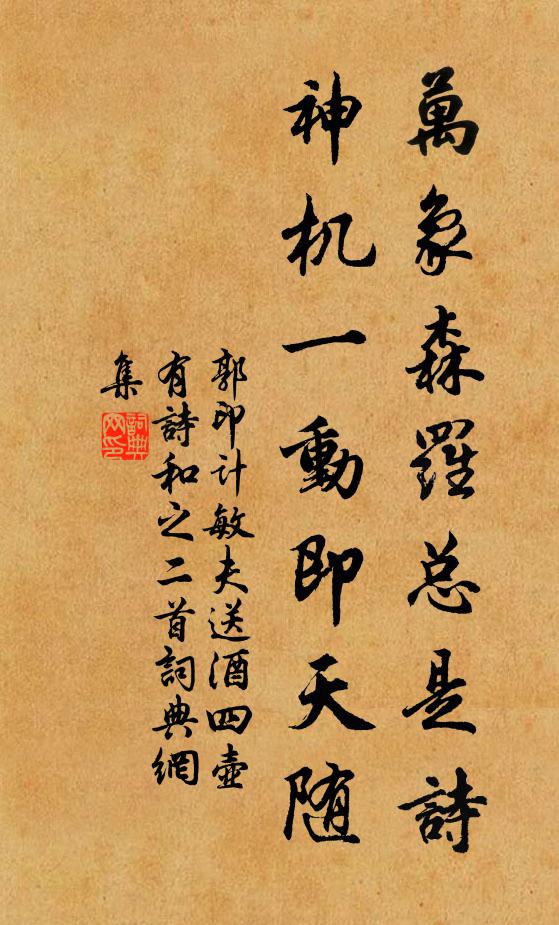 萬象森羅总是詩
神机一動即天随
郭印计敏夫送酒四壶
有詩和之二首詞典網
集
詞典
网印